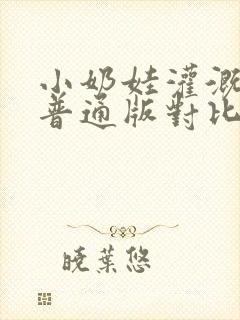 小奶娃灌溉
普通版對比
曉葉悠